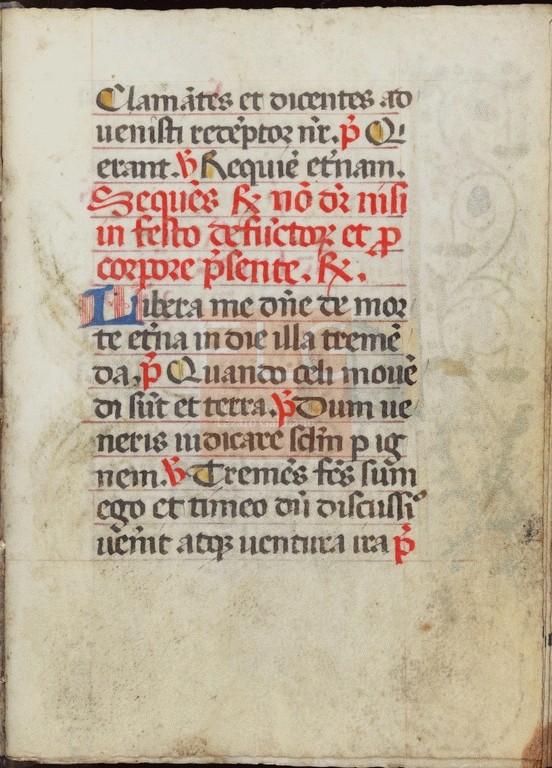 Clamātes et dicentes ad
uenisti redēptor nr̄. p̄ Q̇
erant. v̄ Requiē et̄nam.
Sequēs R̷ nō dr̄ nisi
in festo defūctoꝝ et ꝓ
corpore p̄sente. R̷.
Libera me dn̄e de mor
te et̄na in die illa tremē
da, p̄ Quando celi mouē
di sūt et terra. p̄ Dum ue
neris iudicare sclm̄ p ig
nem. v̄ Tremēs fc̄s sum
ego et timeo dū discussi⁰
uēnit atqꝫ uentura ira p̄